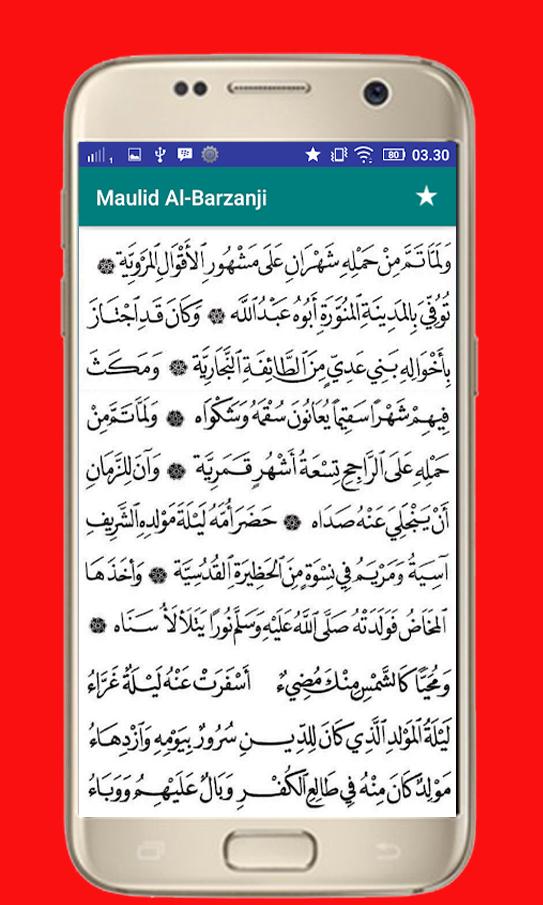 1 80 03.30
Maulid Al-Barzanji
وَلَمَّا تَمَّ مِنْ حَمْلِهِ شَهْرَانِ عَلَى مَشْهُورِ الْأَقْوَالِ الْمَرْوِيَّةِ
تُوُفِّيَ بِالْمَدِينَةِ الْمُنَوَّرَةِ أَبُوهُ عَبْدُ اللَّه وَكَانَ قَدِ اجْتَازَ
بِأَخْوَالِهِ بَنِي عَدِيٍّ مِنَ الطَّائِفَةِ النَّجَّارِيَّةِ وَمَكَثَ
فِيهِمْ شَهْرًا سَقِيمًا يُعَانُونَ سُقْمَهُ وَشَكْوَاه وَلَمَّا تَمَّ مِنْ
حَمْلِهِ عَلَى الرَّاجِحِ تِسْعَةُ أَشْهُرٍ قَمَرِيَّة وَآنَ لِلزَّمَانِ
أَنْ يَنْجَلِيَ عَنْهُ صَدَاه حَضَرَ أُمَّهُ لَيْلَةَ مَوْلِدِهِ الشَّرِيفِ
آسِيَةُ وَمَرْيَمُ فِي نِسْوَةٍ مِنَ الْحَظِيرَةِ الْقُدُسِيَّة وَأَخَذَهَا
الْمَخَاضُ فَوَلَدَتْهُ صَلَّى اللَّهُ عَلَيْهِ وَسَلَّمَ نُورًا يَتَلَأْلَأُ سَنَاه
وَمُحَيًّا كَالشَّمْسِ مِنْكَ مُضِيءٌ أَسْفَرَتْ عَنْهُ لَيْلَةٌ غَرَّاءُ
لَيْلَةُ الْمَوْلِدِ الَّذِي كَانَ لِلدِّينِ سُرُورٌ بِيَوْمِهِ وَازْدِهَاءُ
مَوْلِدٌ كَانَ مِنْهُ فِي طَالِعِ الْكُفْرِ وَبَالٌ عَلَيْهِمُ وَوَبَاءُ